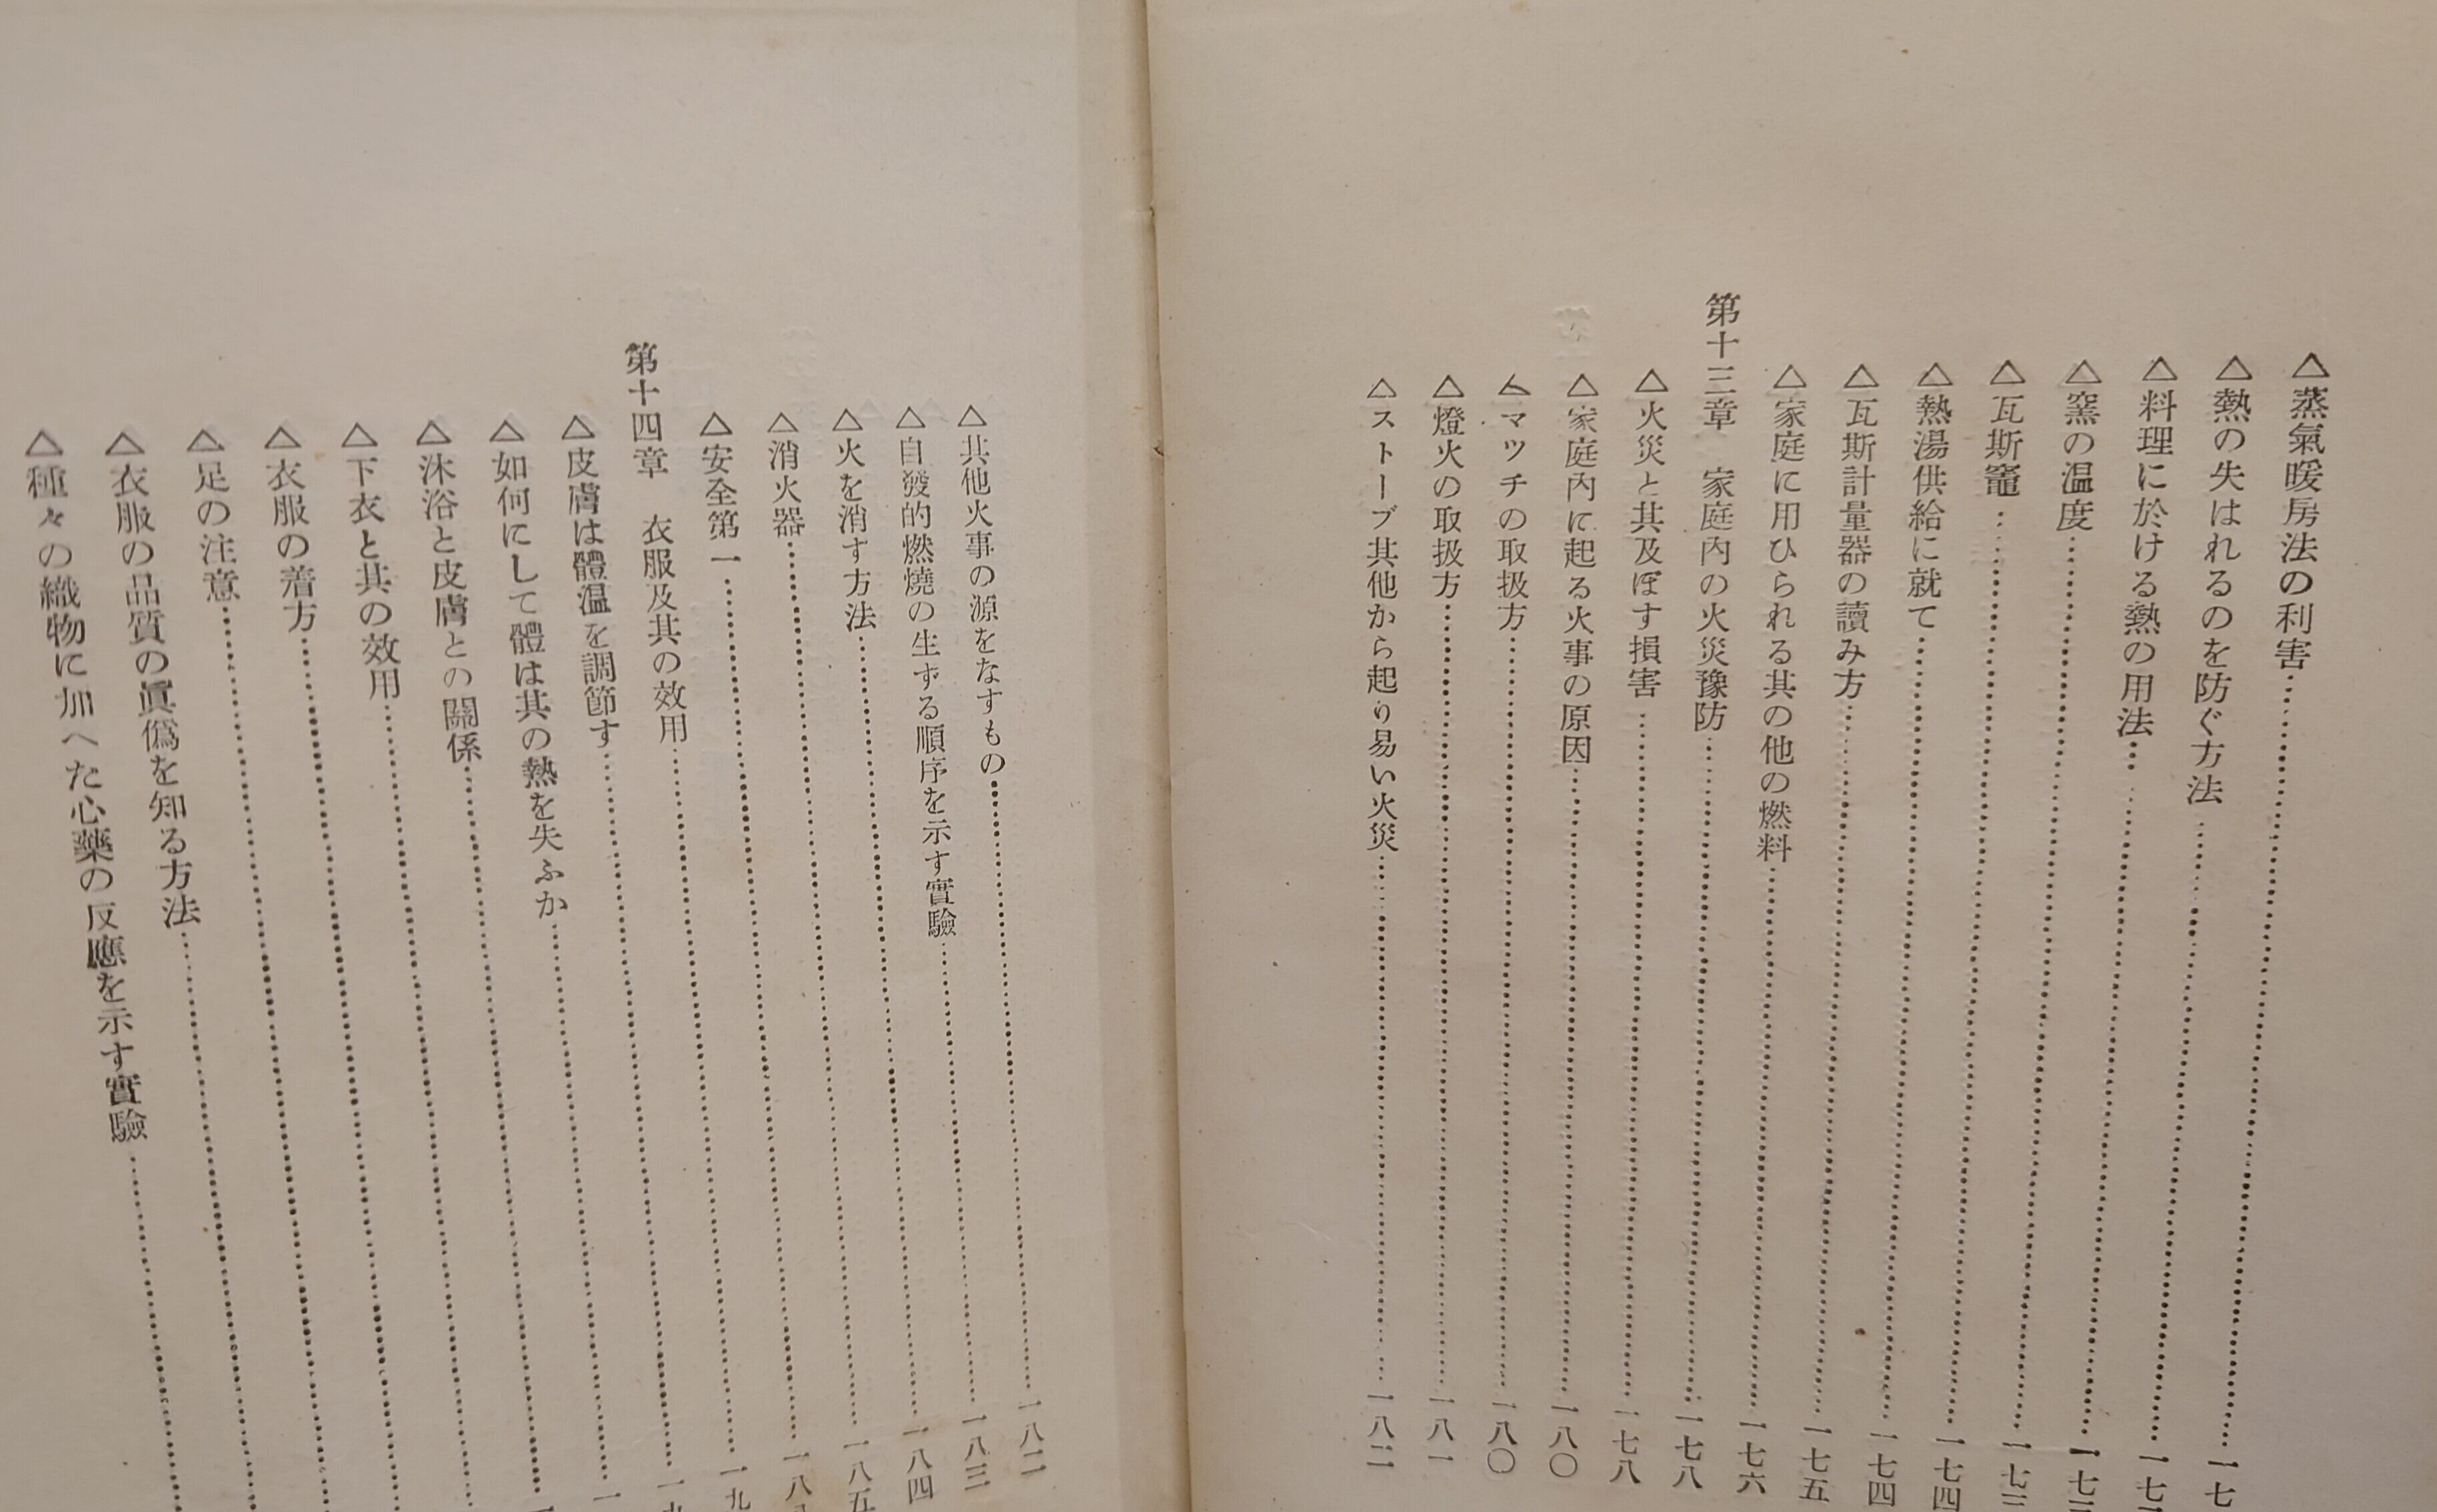 △蒸氣暖房法の利害……一七
△熱の失はれるのを防ぐ方法……一七
△料理に於ける熱の用法……一七三
△窯の温度……一七三
△瓦斯竈……一七四
△熱湯供給に就て……一七四
△瓦斯計量器の讀み方……一七五
△家庭に用ひられる其の他の燃料……一七六
第十三章　家庭内の火災豫防……一七八
△火災と其及ぼす損害……一七八
△家庭内に起る火事の原因……一八〇
△マツチの取扱方……一八〇
△燈火の取扱方……一八一
△ストーブ其他から起り易い火災……一八二
△其他火事の源をなすもの……一八二
△自發的燃燒の生ずる順序を示す實驗……一八三
△火を消す方法……一八四
△消火器……一八五
△安全第一……一八
第十四章　衣服及其の效用……一九
△皮膚は體温を調節す……一九
△如何にして體は其の熱を失ふか……一
△沐浴と皮膚との關係……一
△下衣と其の效用……
△衣服の着方……
△足の注意……
△衣服の品質の眞僞を知る方法……
△種々の織物に加へた心藥の反應を示す實驗……